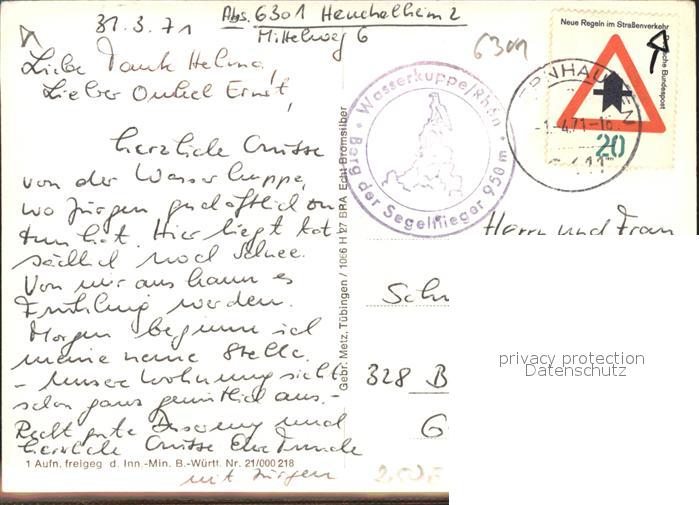 31.3.71
Abs. 6301 Heuchelheim 2
Mittelweg 6
6301
Liebe Tante Helma,
Lieber Onkel Ernst,
herzliche Grüsse
von der Wasserkuppe,
wo Jürgen geschäftlich zu
tun hat. Hier liegt tat-
sächlich noch Schnee.
Von mir aus kann es
Frühling werden.
Morgen beginne ich
meine neue Stelle.
- Unsere Wohnung sieht
schon ganz gemütlich aus. -
Recht gute Besserung und
herzliche Grüsse Eure
mit Jürgen
1 Aufn. freigeg d. Inn.-Min. B.-Württ. Nr. 21/000 218
Gebr. Metz, Tübingen / 1066 H 27 BRA Echt Bromsilber
Wasserkuppe/Rhön
Berg der Segelflieger 950 m
Neue Regeln im Straßenverkehr
Deutsche Bundespost
20
-1.-4.71-18
Herrn und Frau
Sch
328 B
G
privacy protection
Datenschutz
2,50